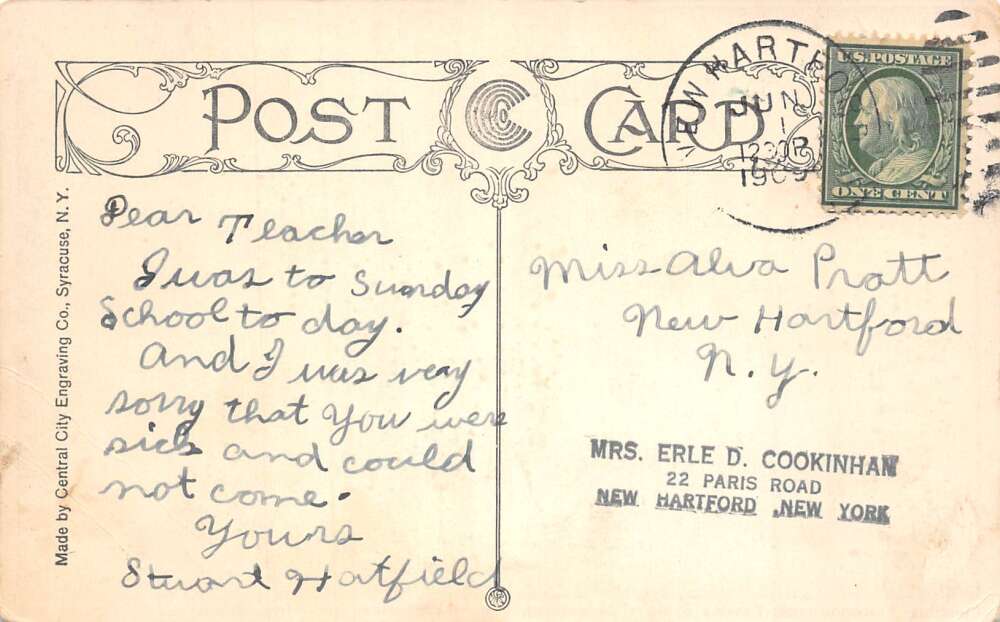 POST CARD
NEW HARTFORD
JUN
1
1909
U.S. POSTAGE
ONE CENT
Made by Central City Engraving Co., Syracuse, N. Y.
Dear Teacher
I was to Sunday
School to day.
And I was very
sorry that you were
sick and could
not come.
Yours
Stuart Hatfield
Miss Alva Pratt
New Hartford
N.Y.
MRS. ERLE D. COOKINHAM
22 PARIS ROAD
NEW HARTFORD, NEW YORK